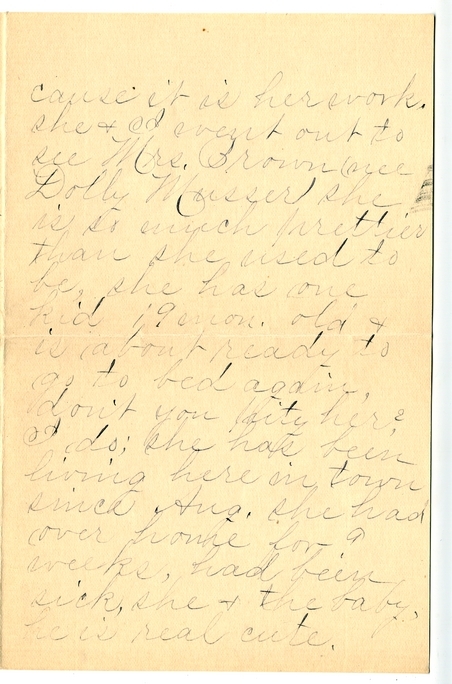 cause it is her work.
she & I went out to
see Mrs. Brown (nee
Dolly Musser) she
is so much prettier
than she used to
be, she has one
kid 19 mon. old &
is about ready to
go to bed again,
don't you pity her?
I do; she has been
living here in town
since Aug. she had
over home for 9
weeks, had been
sick, she & the baby,
he is real cute.